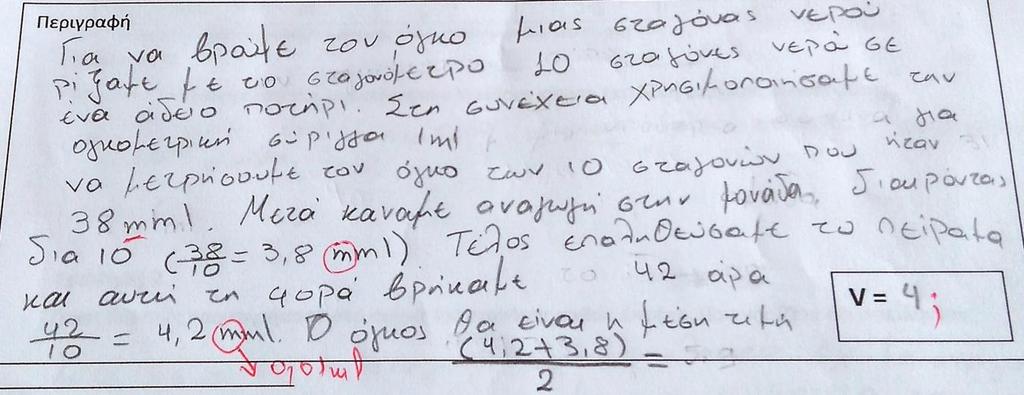 Περιγραφή
Για να βρούμε τον όγκο μιας σταγόνας νερού
ρίξαμε με το σταγονόμετρο 10 σταγόνες νερό σε
ένα άδειο ποτήρι. Στη συνέχεια χρησιμοποιήσαμε την
ογκομετρική σύριγγα 1ml για
να μετρήσουμε τον όγκο των 10 σταγονών που ήταν
38 mml. Μετά καναμε αναγωγή στην μονάδα, διαιρόντας
δια 10 (38/10 = 3,8 mml) Τέλος επαληθεύσαμε το πείραμα
και αυτή τη φορά βρήκαμε 42 άρα
42/10 = 4,2 mml. Ο όγκος θα είναι η μέση τιμή
(4,2+3,8)/2 =
V = 4 ;
0,01ml